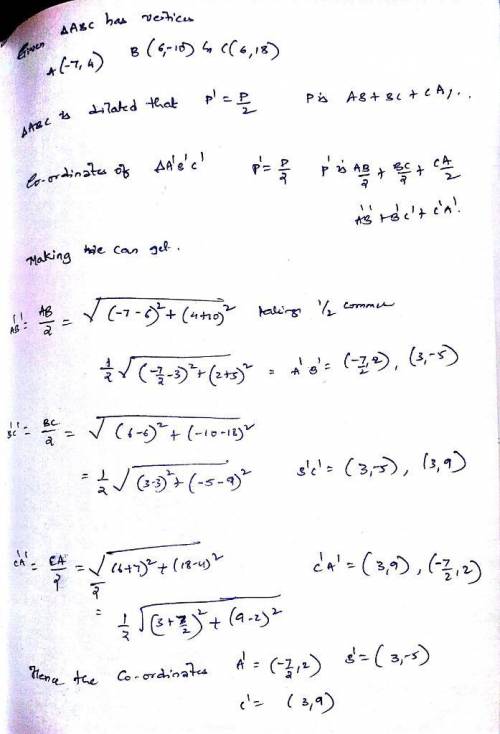 Given ΔABC has vertices
A(-7, 4) B(6,-10) & C(6,18)
ΔABC is dilated that P' = P/2 P is AB + BC + CA,..
Co-ordinates of ΔA'B'C' P' = P/2 P' is AB/2 + BC/2 + CA/2
A'B' + B'C' + C'A'.
Making we can get.
A'B' = AB/2 = √(-7-6)² + (4+10)² taking 1/2 common
1/2 √(-7/2 -3)² + (2+5)² = A'B' = (-7/2, 2), (3,-5)
B'C' = BC/2 = √(6-6)² + (-10-18)²
= 1/2 √(3-3)² + (-5-9)² B'C' = (3,-5), (3,9)
C'A' = CA/2 = √(6+7)² + (18-4)² / 2 C'A' = (3,9), (-7/2, 2)
= 1/2 √(3+7/2)² + (9-2)²
Hence the Co-ordinates A' = (-7/2, 2) B' = (3,-5)
C' = (3,9)